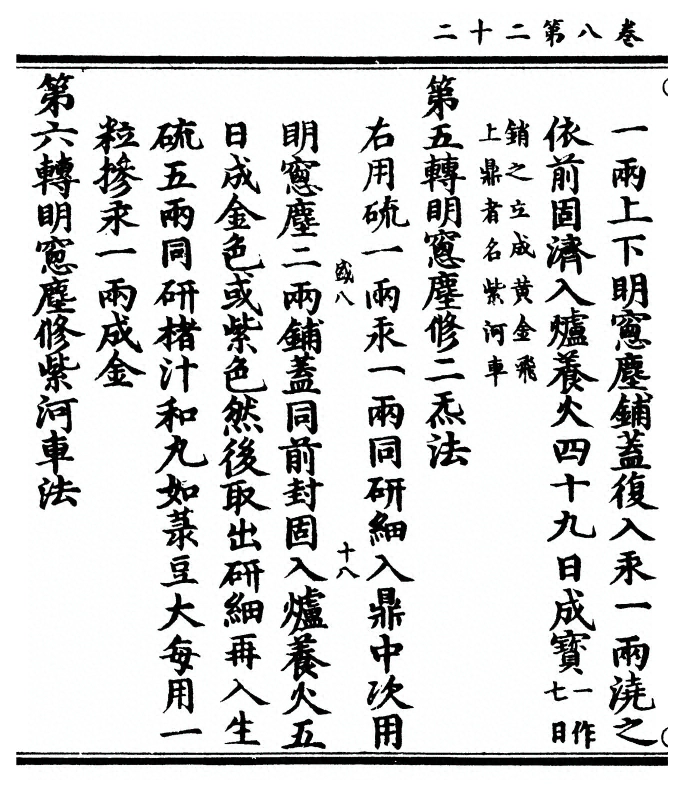 卷八第二十二
一兩上下明窓塵鋪蓋復入汞一兩澆之
依前固濟入爐養火四十九日成寶一作七日
銷之立成黄金飛
上鼎者名紫河車
第五轉明窓塵修二炁法
右用硫一兩汞一兩同研細入鼎中次用
盛八
十八
明窓塵二兩鋪蓋同前封固入爐養火五
日成金色或紫色然後取出研細再入生
硫五兩同研楮汁和丸如菉豆大每用一
粒摻汞一兩成金
第六轉明窓塵修紫河車法